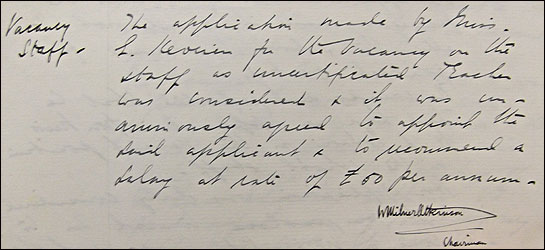 Vacancy
Staff -
The application made by Miss.
L. for the Vacancy on the
staff as uncertificated Teacher
was considered & it was un-
animously agreed to appoint the
said applicant & to recomend a
Salary at rate of £50 per annum -
W Milner Atkinson
Chairman